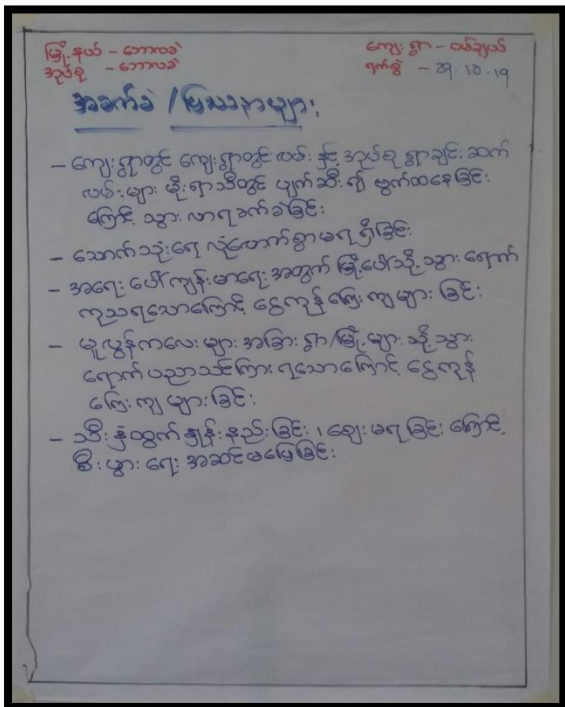 မြို့နယ် - ဘောလခဲ
ကျေးရွာ - ဝမ်ချယ်
အုပ်စု - ဘောလခဲ
ရက်စွဲ - 29.10.19
အခက်ခဲ / ပြဿနာများ
- ကျေးရွာတွင် ကျေးရွာတွင်းလမ်း နှင့် အုပ်စု ရွာချင်းဆက်
လမ်းများ မိုးရာသီတွင် ပျက်ဆီး၍ ဗွက်ထနေခြင်း
ကြောင့် သွားလာရခက်ခဲခြင်း
- သောက်သုံးရေ လုံလောက်စွာမရရှိခြင်း
- အရေးပေါ်ကျန်းမာရေးအတွက် မြို့ပေါ်သို့ သွားရောက်
ကုသရသောကြောင့် ငွေကုန်ကြေးကျများခြင်း
- မူလွန်ကလေးများ အခြားရွာ/မြို့များသို့ သွား
ရောက်ပညာသင်ကြားရသောကြောင့် ငွေကုန်
ကြေးကျများခြင်း
- သီးနှံထွက်နှုန်းနည်းခြင်း ၊ ဈေးမရခြင်းကြောင့်
စီးပွားရေး အဆင်မပြေခြင်း